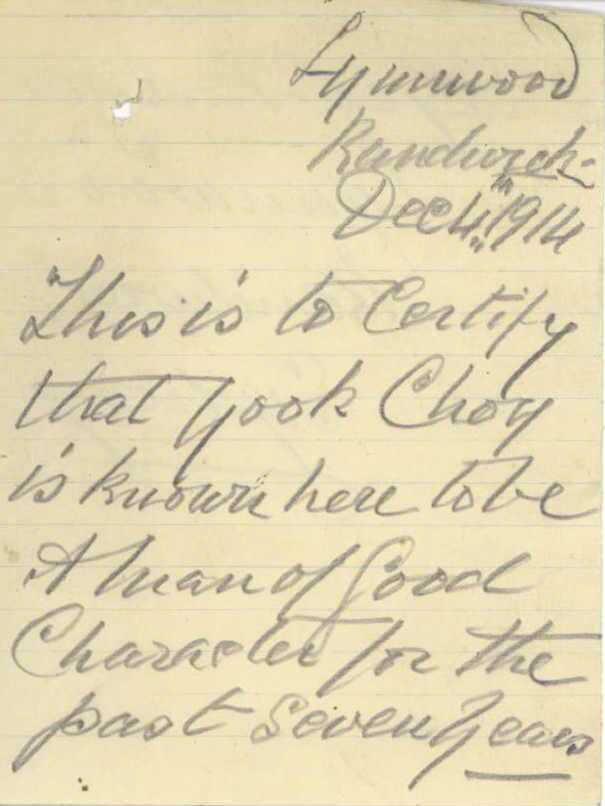 Lynwood
Randwick
Dec 4th 1914
This is to Certify
that Yook Choy
is known here to be
A man of Good
Character for the
past Seven Years